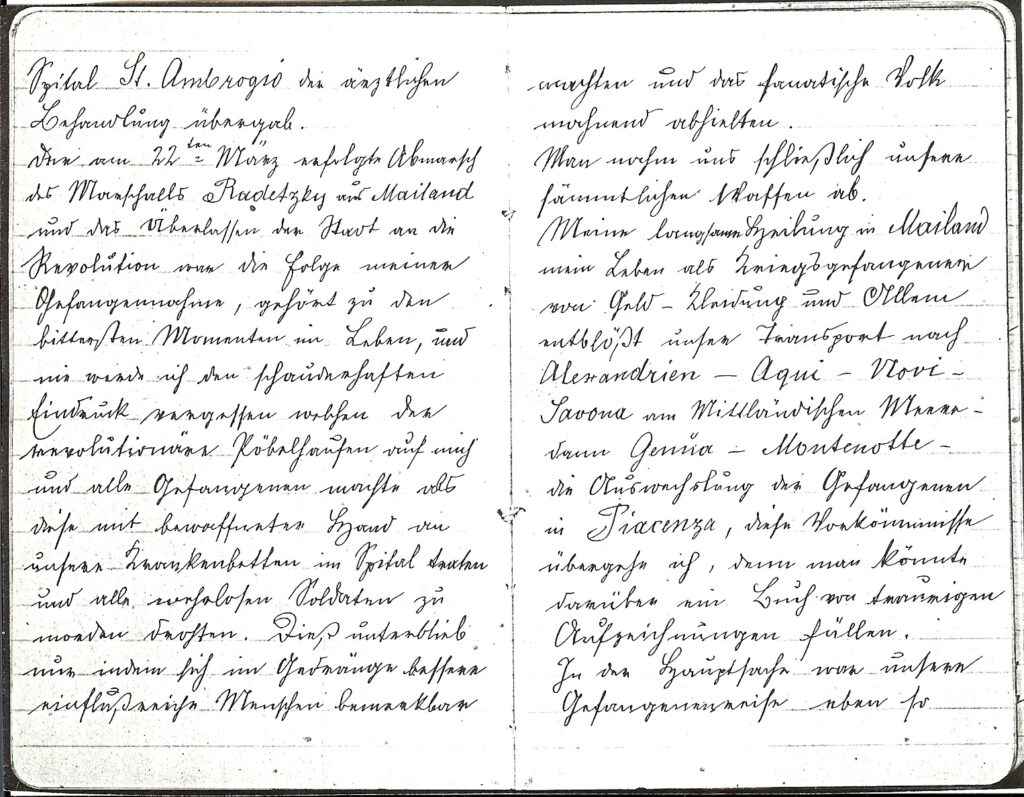 Spital St. Ambrogio der ärztlichen
Behandlung übergab.
Der am 22ten März erfolgte Abmarsch
des Marschalls Radetzky aus Mailand
und das Überlassen der Stadt an die
Revolution war die Folge meiner
Gefangennahme, gehört zu den
bittersten Momenten im Leben, und
nie werde ich den schauderhaften
Eindruck vergessen welchen der
revolutionäre Pöbelhaufen auf mich
und alle Gefangenen machte als
diese mit bewaffneter Hand an
unsere Krankenbetten im Spital traten
und alle wehrlosen Soldaten zu
morden drohten. Dieß unterblieb
nur indem sich im Gedränge bessere
einflußreiche Menschen bemerkbar
machten und das fanatische Volk
mahnend abhielten.
Man nahm uns schließlich unsere
sämmtlichen Waffen ab.
Meine langsame Heilung in Mailand
mein Leben als Kriegsgefangener
von Geld – Kleidung und Allem
entblößt unser Transport nach
Alexandrien – Aqui – Novi –
Savona am Mittländischen Meere –
dann Genua – Montenotte –
die Auswechslung der Gefangenen
in Piacenza, diese Vorkommnisse
übergehe ich, denn man könnte
darüber ein Buch von traurigen
Aufzeichnungen füllen.
In der Hauptsache war unsere
Gefangenenreise eben so